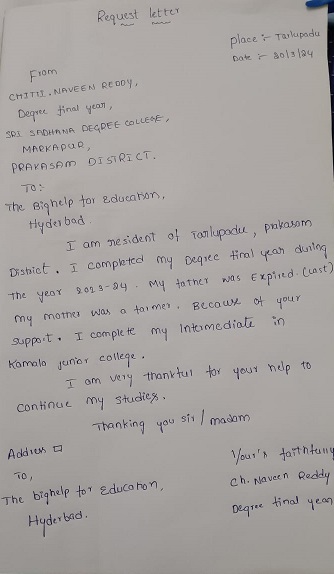 Request letter
place :- Tarlupadu
Date :- 30/3/24
From
CHITTI. NAVEEN REDDY,
Degree final year,
SRI SADHANA DEGREE COLLEGE,
MARKAPUR,
PRAKASAM DISTRICT.
To:-
The Bighelp for Education,
Hyderbad.
I am resident of Tarlupadu, prakasam
District. I completed my Degree final year during
the year 2023-24. My father was Expired. (Last)
my mother was a farmer. Because of your
support. I complete my Intermediate in
Kamala junior college.
I am very thankful for your help to
continue my studies.
Thanking you sir/madam
Address
To,
The bighelp for Education,
Hyderbad.
Your's faithfully
Ch. Naveen Reddy
Degree final year